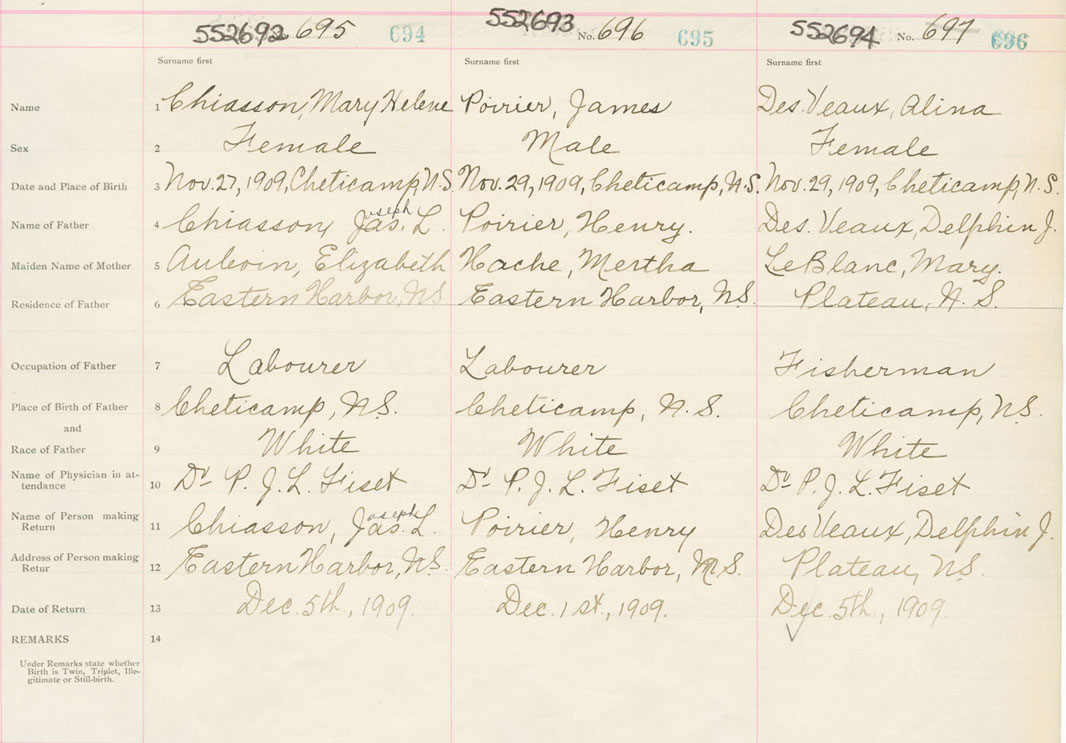 552692 695 694 552693 No. 696 695 552694 No. 697 696
Surname first Surname first Surname first
Name 1 Chiasson, Mary Helene Poirier, James Des. Veaux, Alina
Sex 2 Female Male Female
Date and Place of Birth 3 Nov. 27, 1909, Cheticamp, N.S. Nov. 29, 1909, Cheticamp, N.S. Nov. 29, 1909, Cheticamp, N.S.
Name of Father 4 Chiasson, Jas. oseph L. Poirier, Henry. Des. Veaux, Delphin J.
Maiden Name of Mother 5 Aucoin, Elizabeth Hache, Mertha LeBlanc, Mary.
Residence of Father 6 Eastern Harbor, N.S. Eastern Harbor, N.S. Plateau, N.S.
Occupation of Father 7 Labourer Labourer Fisherman
Place of Birth of Father 8 Cheticamp, N.S. Cheticamp, N.S. Cheticamp, N.S.
and
Race of Father 9 White White White
Name of Physician in at-
tendance 10 Dr P. J. L. Fiset Dr P. J. L. Fiset Dr P. J. L. Fiset
Name of Person making
Return 11 Chiasson, Jas. oseph L. Poirier, Henry Des Veaux, Delphin J.
Address of Person making
Retur 12 Eastern Harbor, N.S. Eastern Harbor, N.S. Plateau, N.S.
Date of Return 13 Dec. 5th, 1909. Dec. 1st., 1909. Dec. 5th, 1909
REMARKS 14
Under Remarks state whether
Birth is Twin, Triplet, Ille-
gitimate or Still-birth.